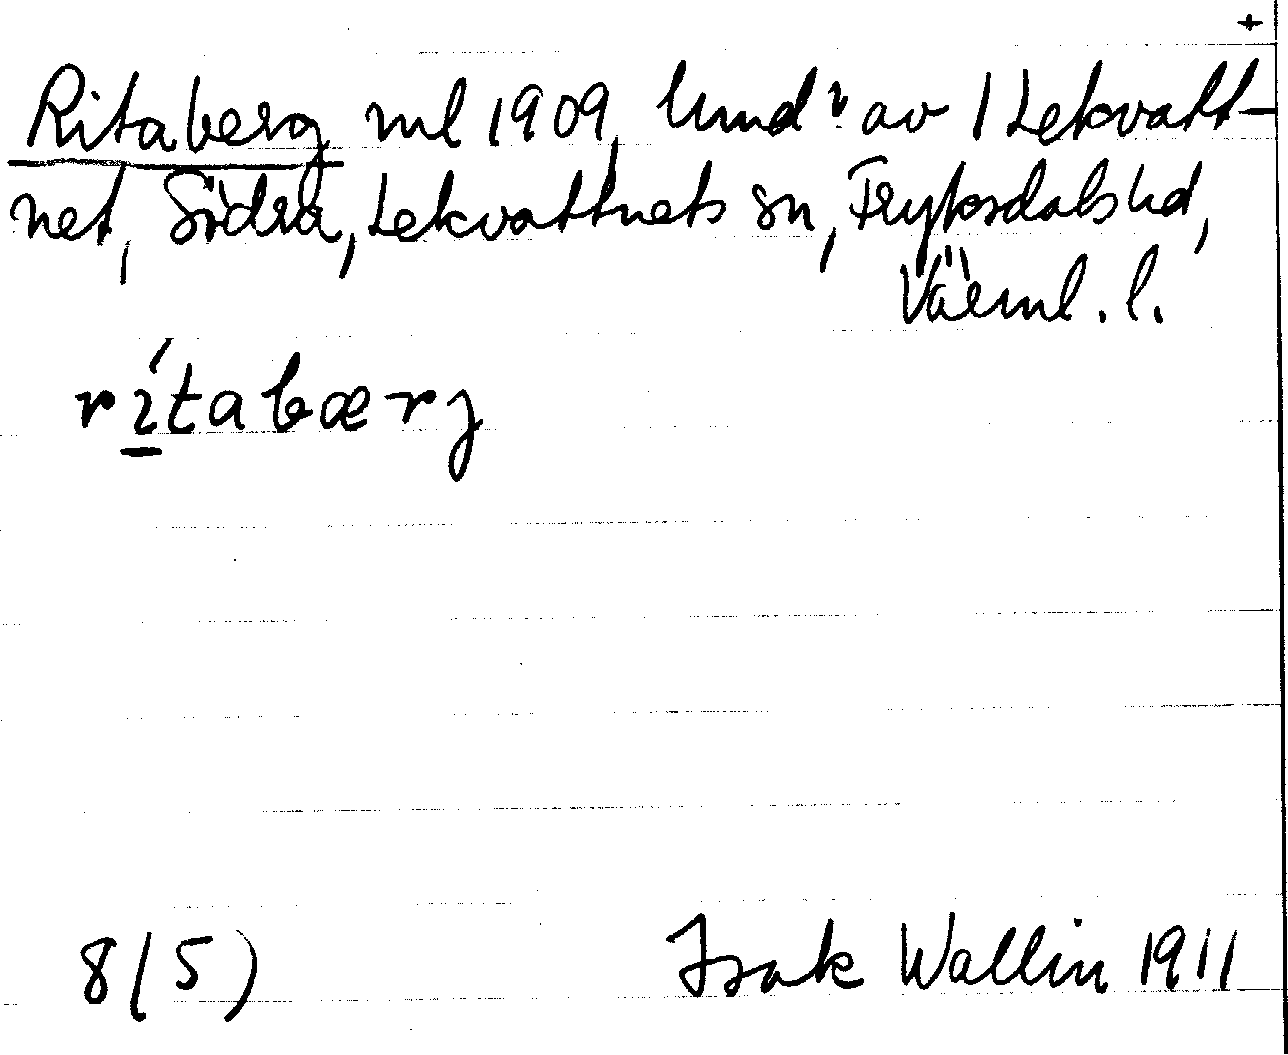 +
Ritaberg ml 1909, lund? av 1 Lekvatt-
net, Södra, Lekvattnets sn, Fryksdals hd,
Värml. l.
rítabærj
8(5)
Isak Wallin 1911